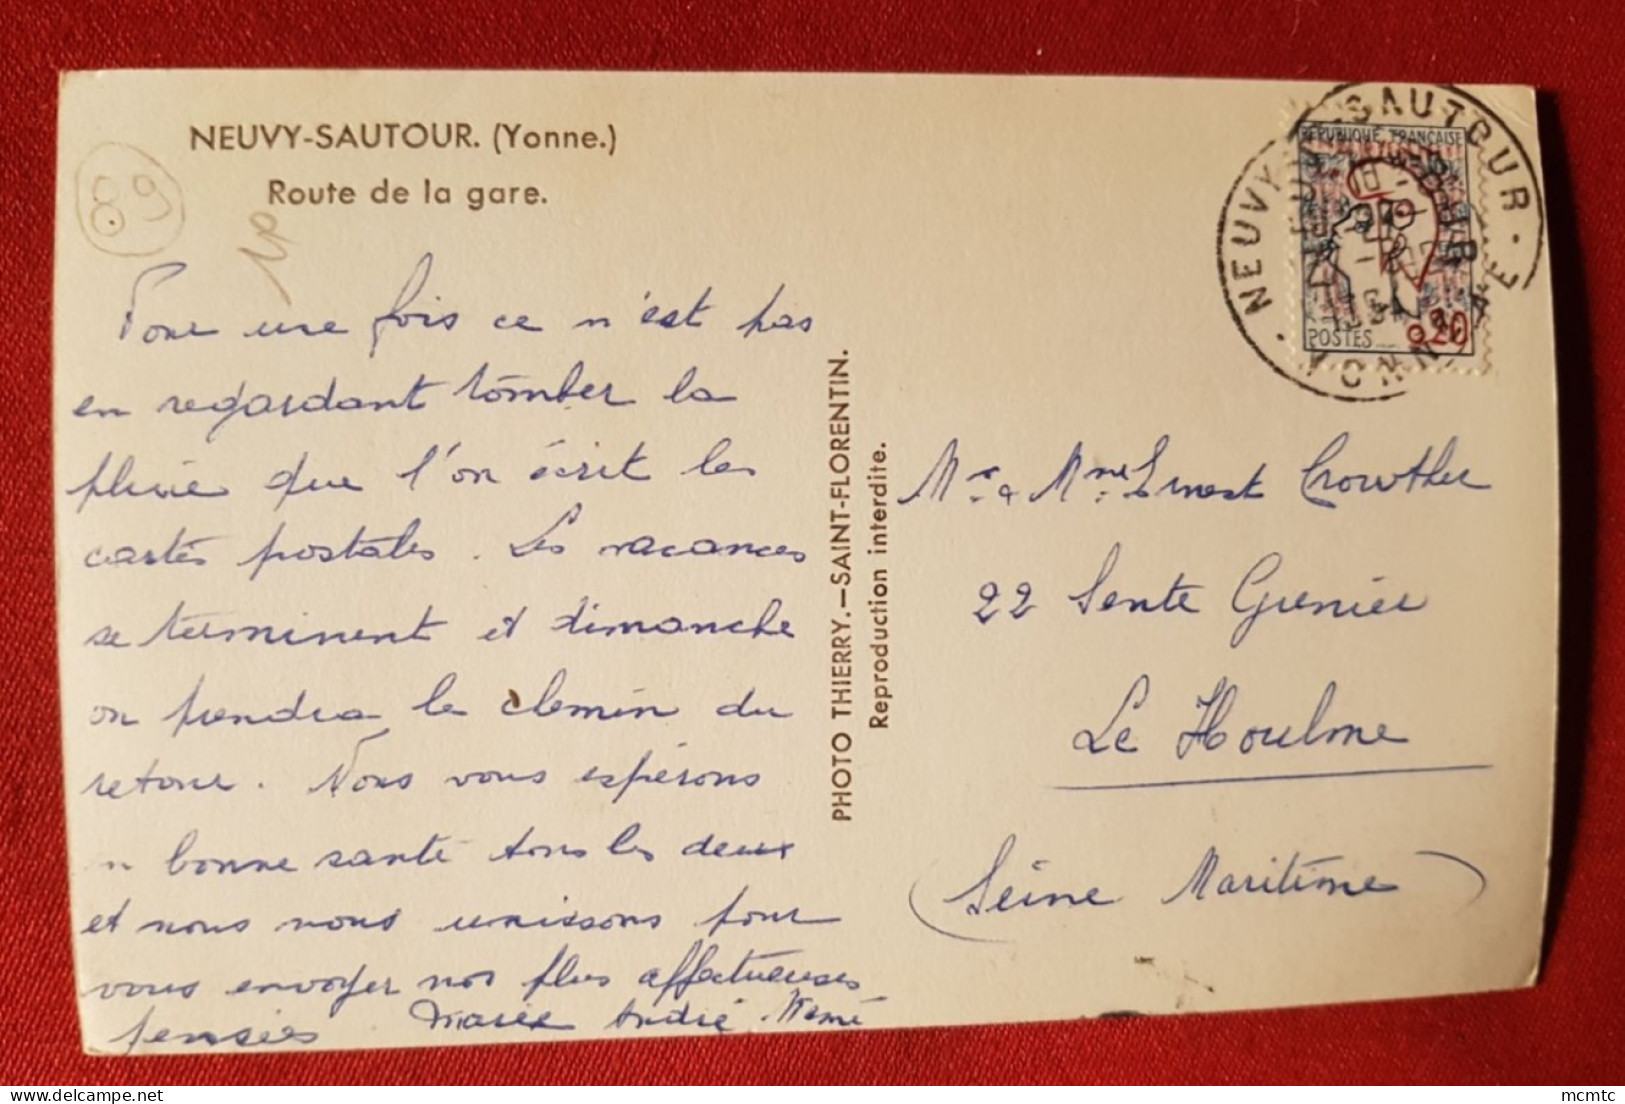 NEUVY-SAUTOUR. (Yonne.)
Route de la gare.
89
Pour une fois ce n'est pas
en regardant tomber la
pluie que l'on écrit les
cartes postales. Les vacances
se terminent et dimanche
on prendra le chemin du
retour. Nous vous espérons
en bonne santé tous les deux
et nous nous unissons pour
vous envoyer nos plus affectueuses
pensées André Mémé
PHOTO THIERRY.—SAINT-FLORENTIN.
Reproduction interdite.
NEUVY-SAUTOUR
YONNE
RÉPUBLIQUE FRANÇAISE
POSTES 0,20
Mr & Mme Ernest Crowther
22 Sente Grenier
Le Houlme
(Seine Maritime)
mcmtc